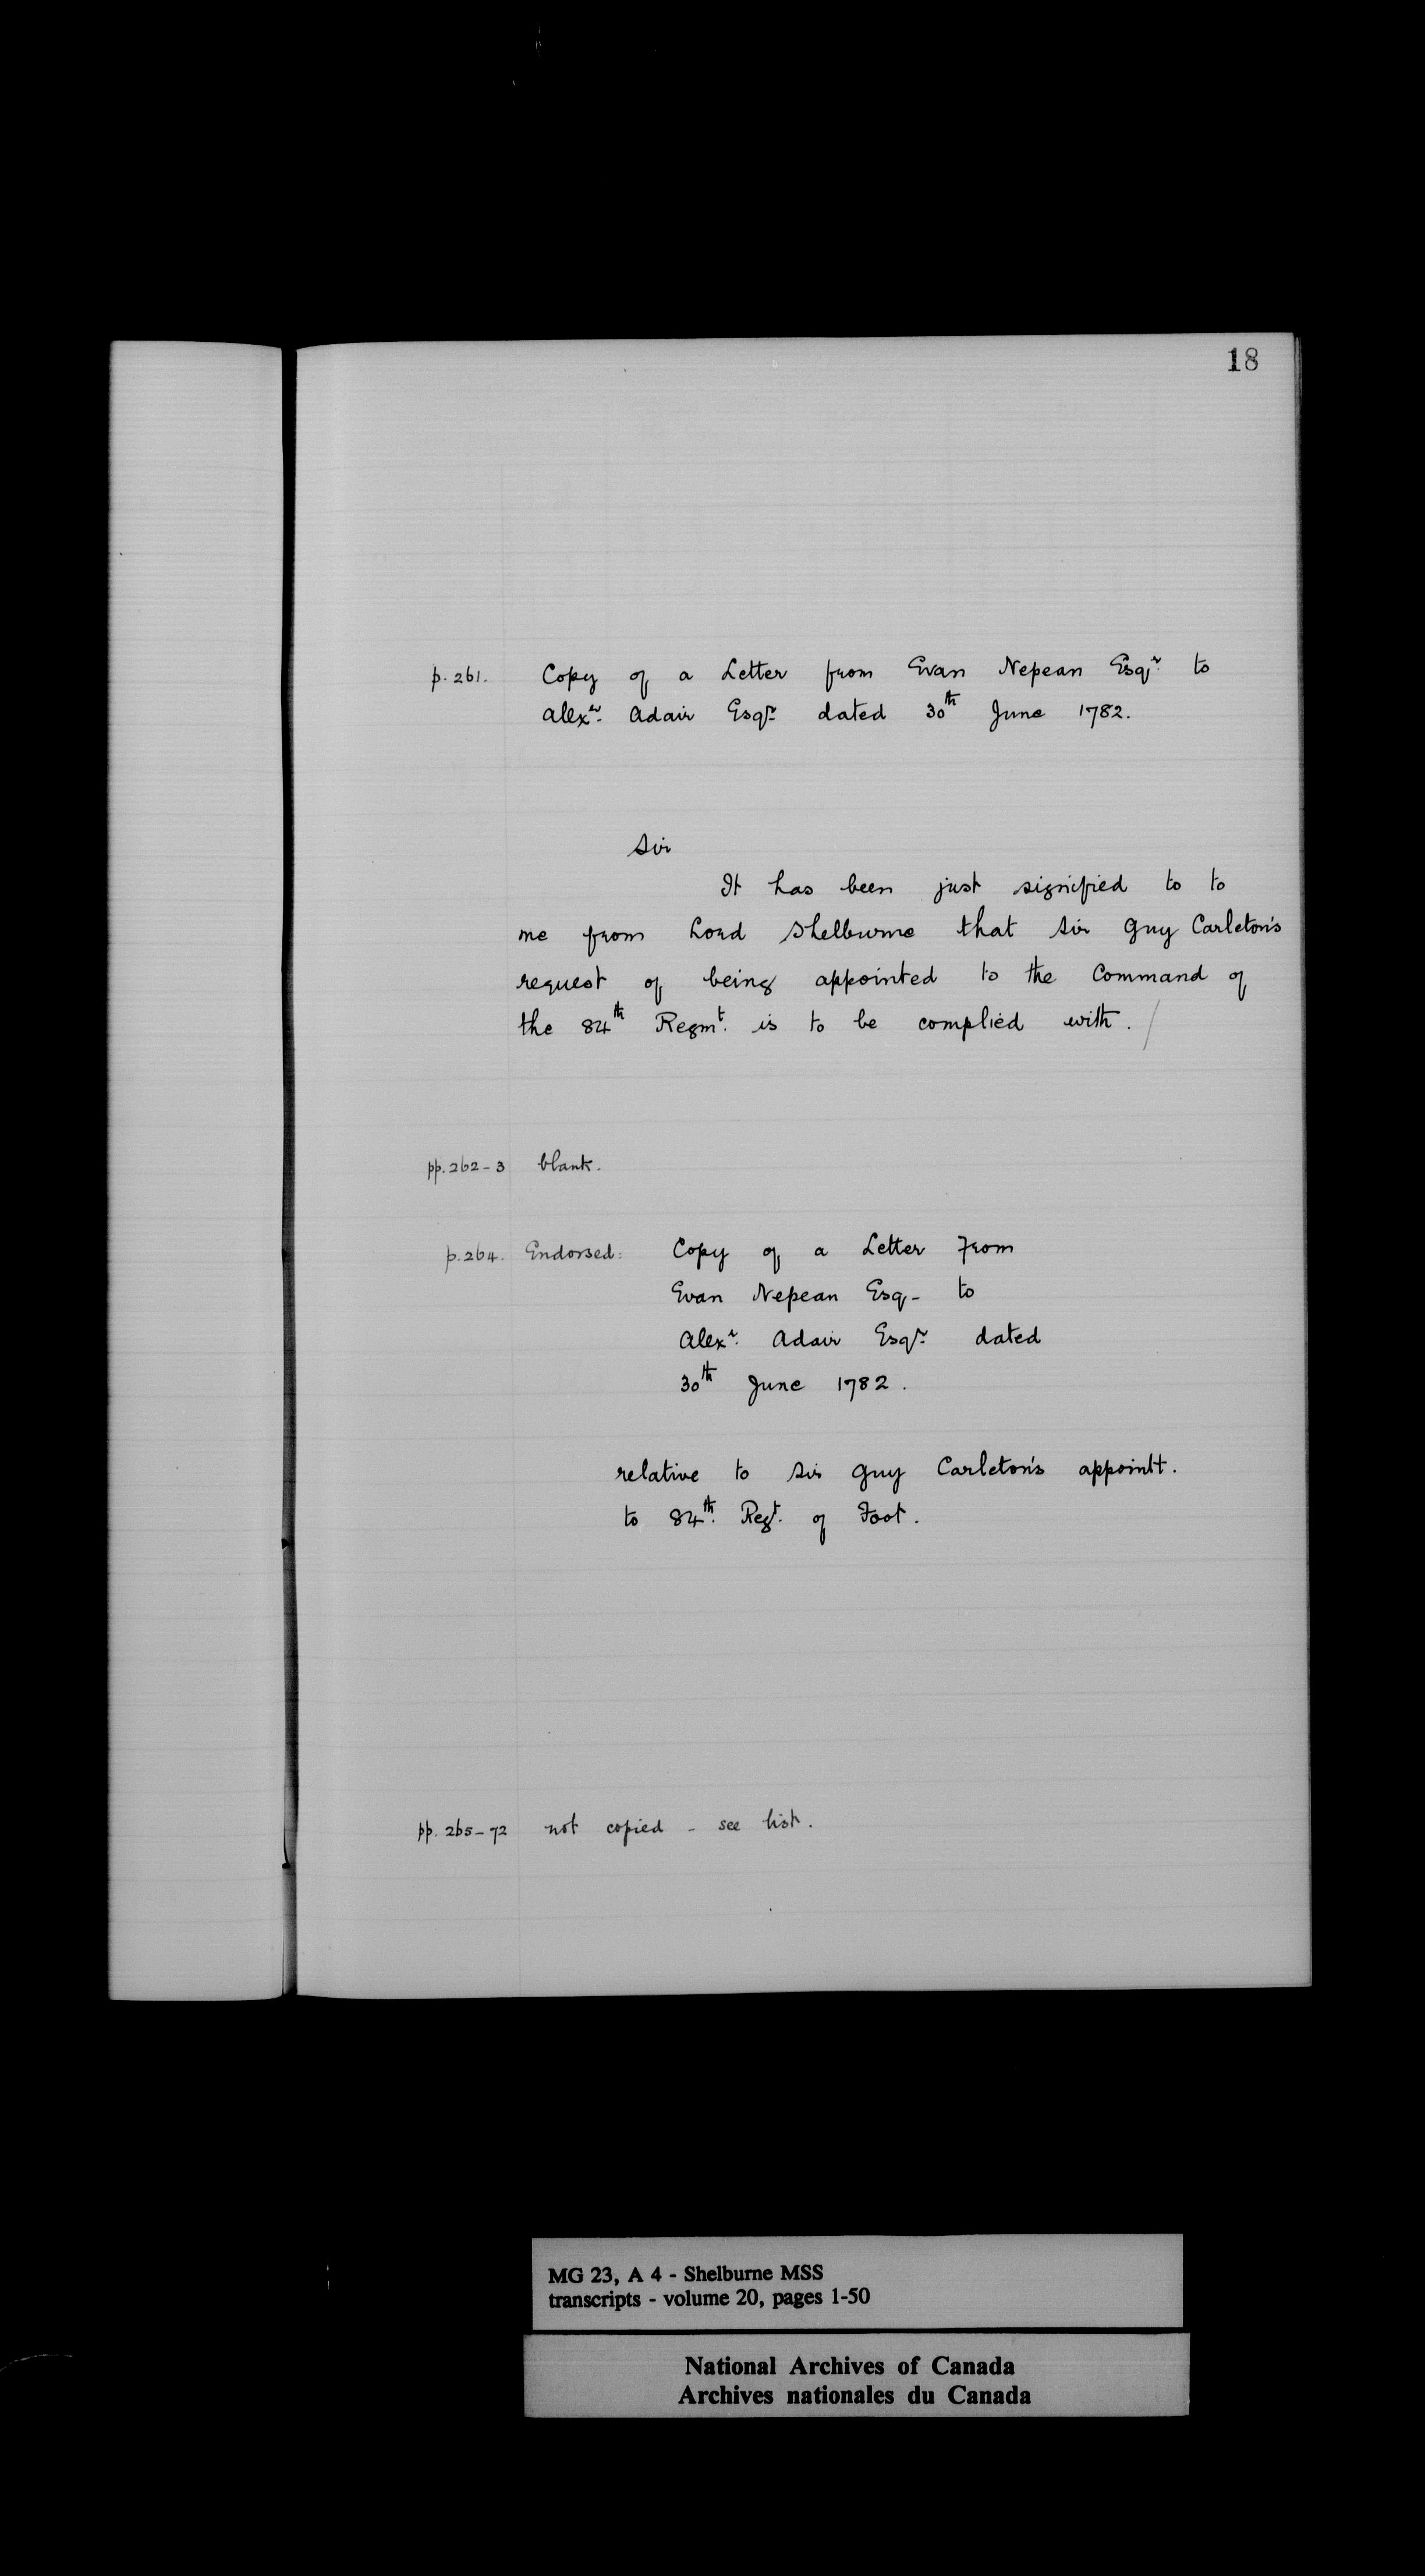 18
p. 261. Copy of a Letter from Evan Nepean Esqr. to
Alexr. Adair Esqr. dated 30th June 1782.
Sir
It has been just signified to to
me from Lord Shelburne that Sir Guy Carleton's
request of being appointed to the Command of
the 84th Regmt. is to be complied with. /
pp. 262-3 blank.
p. 264. Endorsed: Copy of a Letter From
Evan Nepean Esq- to
Alexr. Adair Esqr. dated
30th June 1782.
relative to Sir Guy Carleton's appointt.
to 84th. Regt. of Foot.
pp. 265-72 not copied - see list.
MG 23, A 4 - Shelburne MSS
transcripts - volume 20, pages 1-50
National Archives of Canada
Archives nationales du Canada